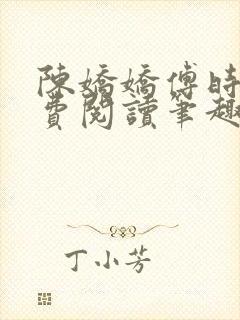 陳嬌嬌傅時
費閱讀筆趣
丁小芳